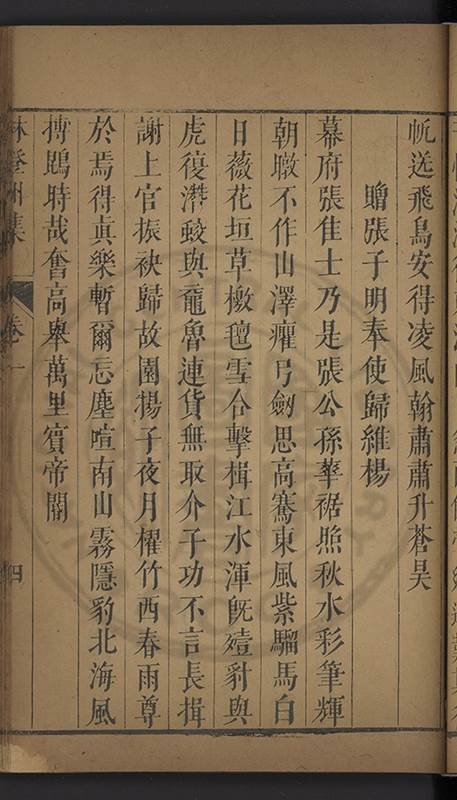 帆送飛鳥安得凌風翰肅肅升蒼昊
贈張子明奉使歸維揚
幕府張隹士乃是張公孫華裾照秋水彩筆輝
朝暾不作山澤癯弓劍思高騫東風紫騮馬白
日薇花垣草檄氊雪合擊楫江水渾旣殪豺與
虎復潛蛟與黿魯連貨無取介子功不言長揖
謝上官振袂歸故園揚子夜月櫂竹西春雨尊
於焉得眞樂暫爾忘塵喧南山霧隱豹北海風
摶鵾時哉奮高舉萬里賓帝閽
林登州集
卷一
四